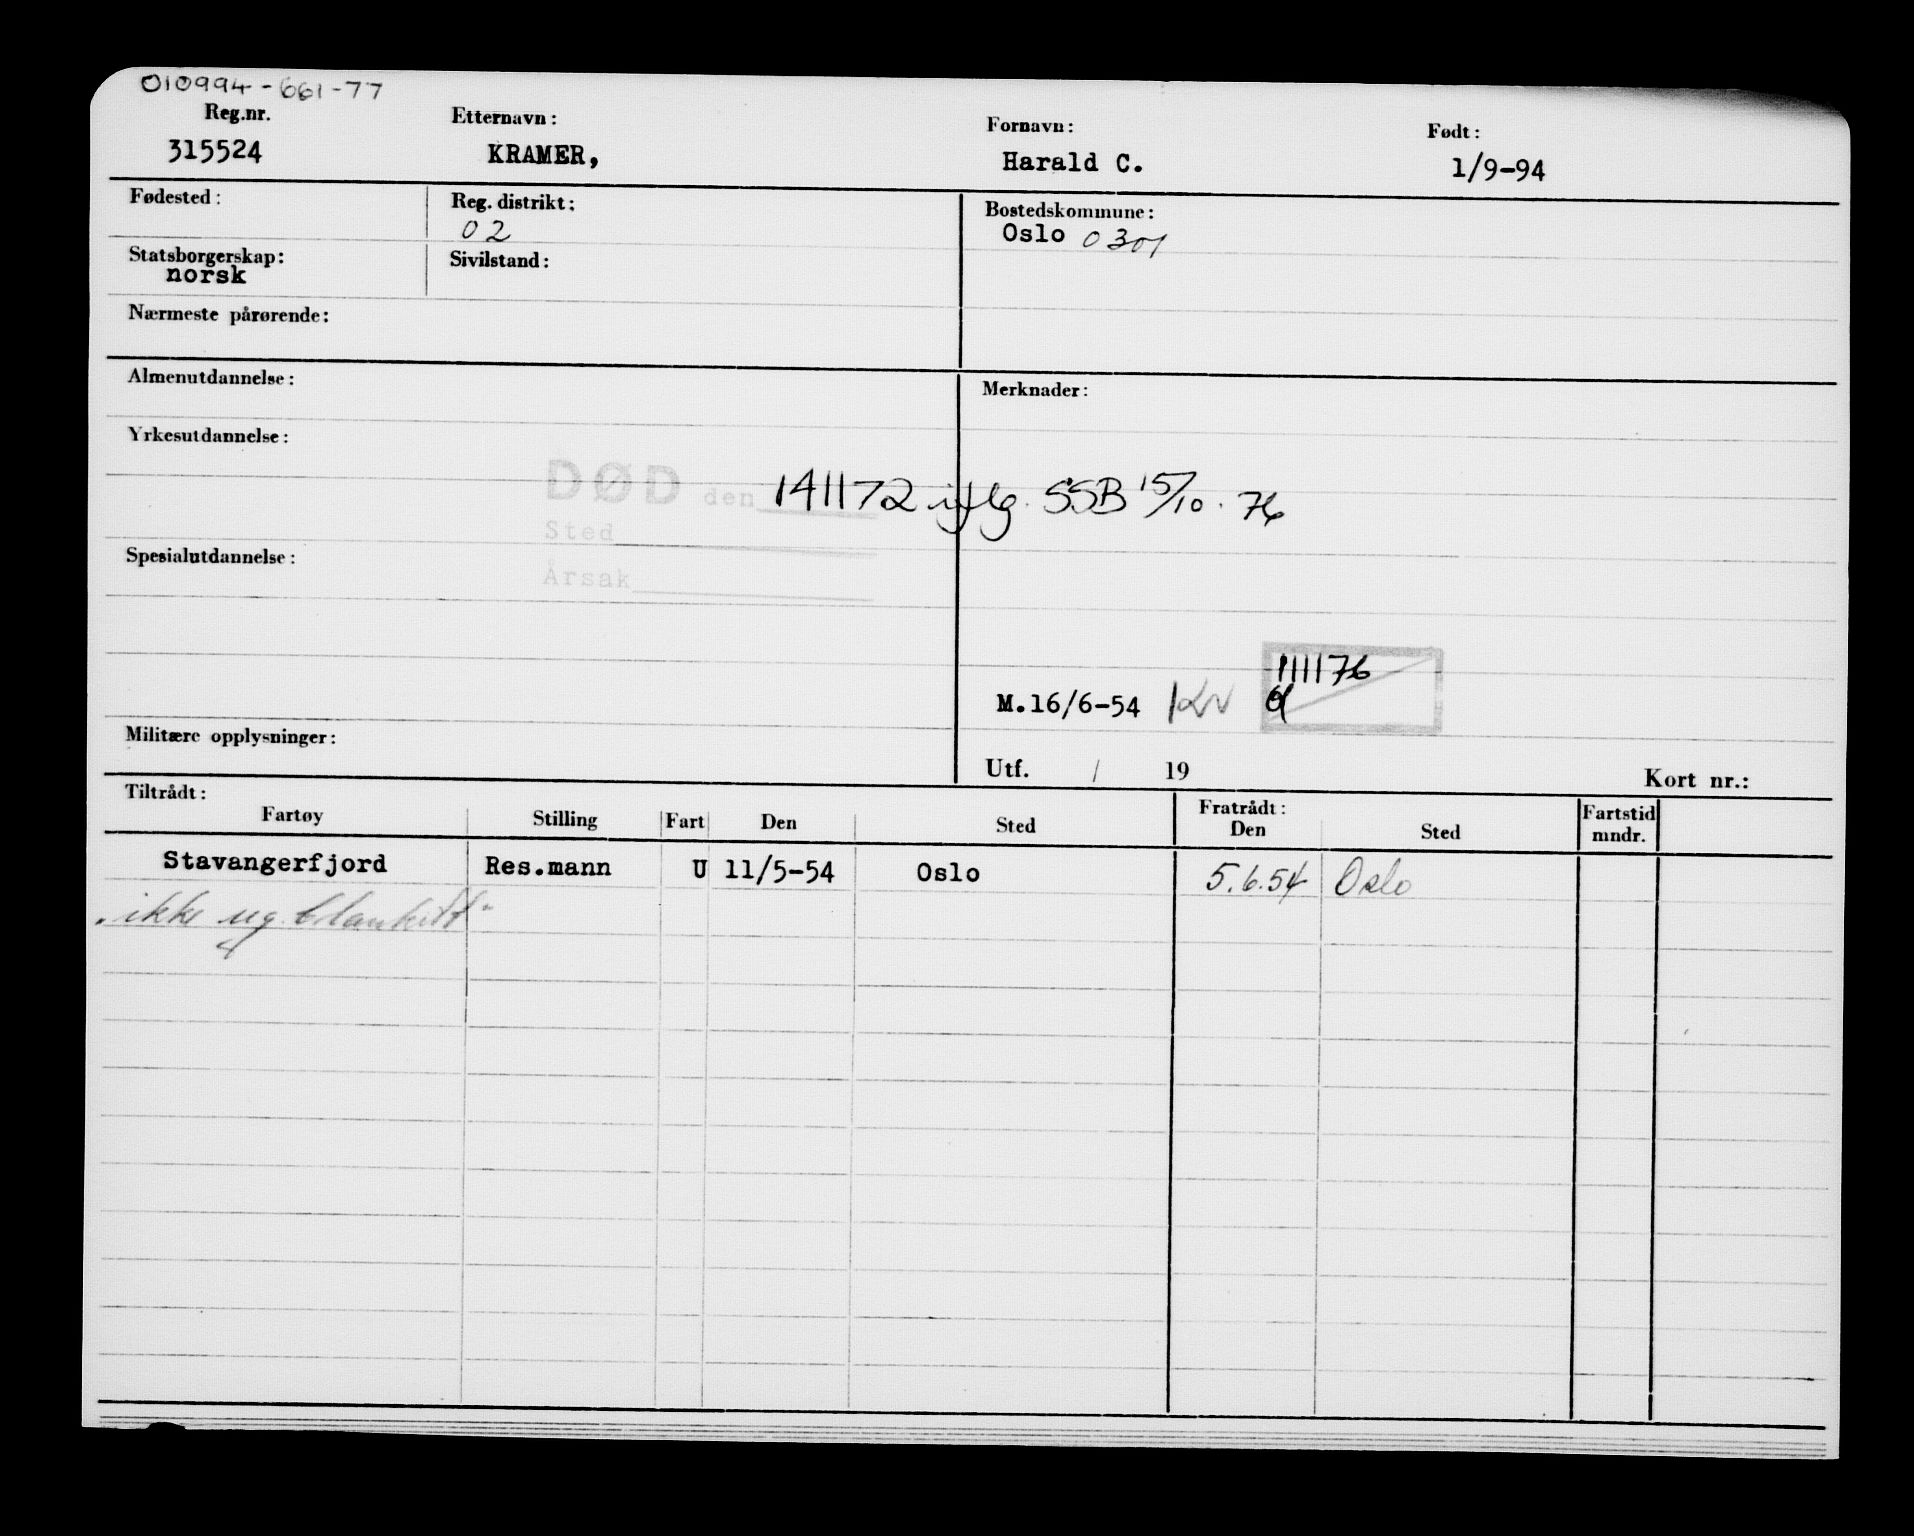 010994-661-77
Reg.nr. Etternavn: Fornavn: Født:
315524 KRAMER, Harald C. 1/9-94
Fødested: Reg. distrikt: Bostedskommune:
02 Oslo 0301
Statsborgerskap: Sivilstand:
norsk
Nærmeste pårørende:
Almenutdannelse: Merknader:
Yrkesutdannelse:
DØD den 141172 iflg. SSB 15/10. 76
Sted
Spesialutdannelse:
Årsak
111176
M.16/6-54
Militære opplysninger:
Utf. / 19 Kort nr.:
Tiltrådt: Fratrådt: Fartstid
Fartøy Stilling Fart Den Sted Den Sted mndr.
Stavangerfjord Res.mann U 11/5-54 Oslo 5.6.54 Oslo
"ikke ug blankett"